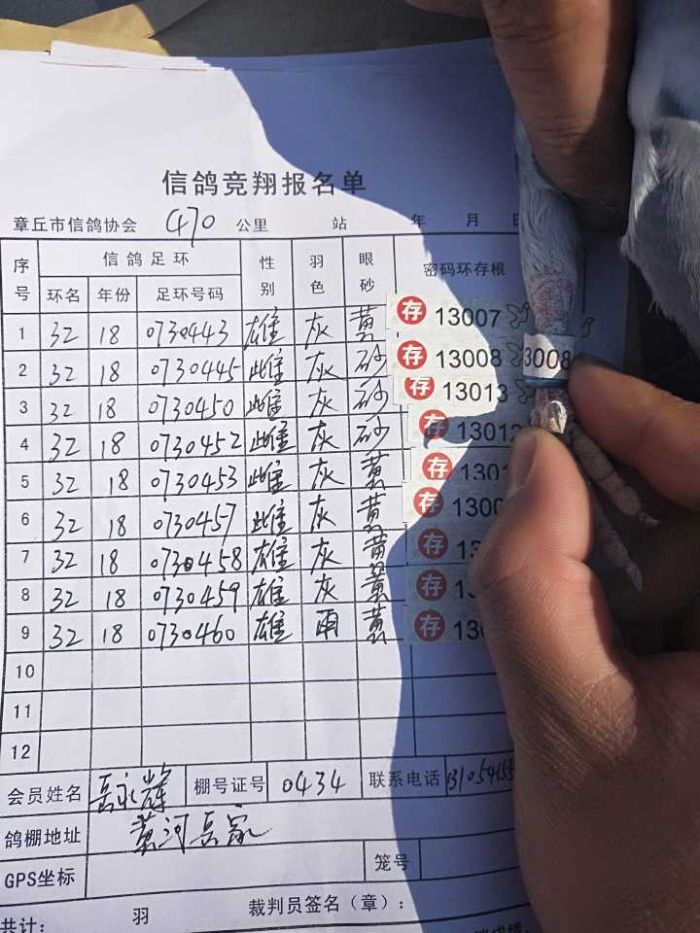 信鸽竞翔报名单
章丘市信鸽协会 470 公里 站 年 月
序号 信鸽足环 性别 羽色 眼砂 密码环存根
环名 年份 足环号码
1 32 18 0730443 雄 灰 黄 存 13007
2 32 18 0730445 雌 灰 砂 存 13008 3008
3 32 18 0730450 雌 灰 砂 存 13013
4 32 18 0730452 雌 灰 砂 存 13012
5 32 18 0730453 雌 灰 黄 存
6 32 18 0730457 雌 灰 黄 存
7 32 18 0730458 雄 灰 黄 存
8 32 18 0730459 雄 灰 黄 存
9 32 18 0730460 雄 雨 黄 存
10
11
12
会员姓名 岳永辉 棚号证号 0434 联系电话
鸽棚地址 黄河岳家
GPS坐标 笼号
共计： 羽 裁判员签名（章）：